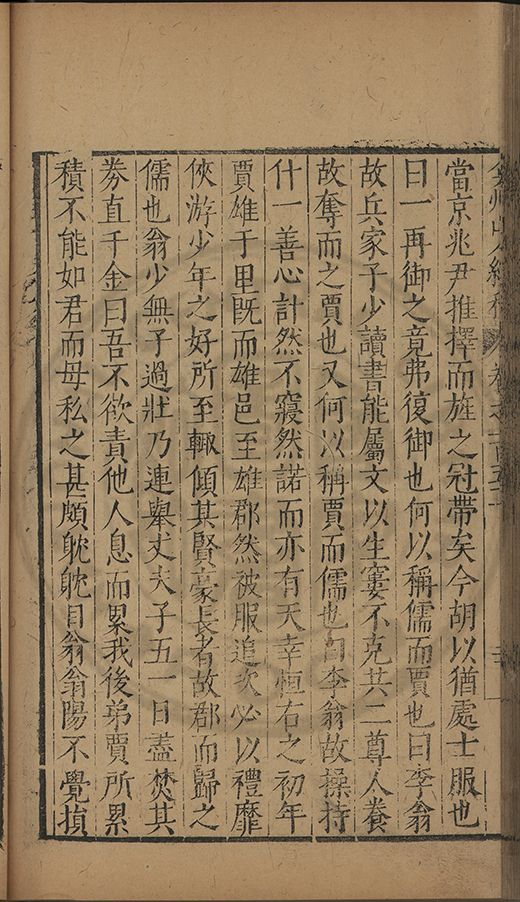 當京兆尹推擇而旌之冠帶矣今胡以猶處士服也
曰一再御之竟弗復御也何以稱儒而賈也曰李翁
故兵家子少讀書能屬文以生窶不克共二尊人養
故奪而之賈也又何以稱賈而儒也曰李翁故操持
什一善心計然不寢然諾而亦有天幸恒右之初年
賈雄于里既而雄邑至雄郡然被服造次必以禮靡
俠游少年之好所至輙傾其賢豪長者故郡而歸之
儒也翁少無子過壯乃連舉丈夫子五一日盡焚其
券直千金曰吾不欲責他人息而累我後弟賈所累
積不能如君而毋私之甚頗眈眈目翁翁陽不覺損